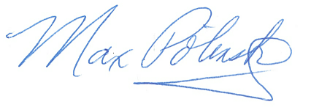 Max Polansk